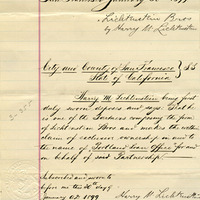 San Francisco January 20th 1899
Lichtenstein Bros
by Harry W. Lichtenstein
City and County of San Francisco } SS
State of California
Harry W. Lichtenstein being first
duly sworn deposes and says: that he
is one of the partners composing the firm
of Lichtenstein Bros and makes the within
claim of exclusive ownership in and to
the name of Portland Loan Office for and
on behalf of said Partnership
Subscribed and sworn to
before me this 20th day of
January A.D. 1899
Harry W. Lichtenstein